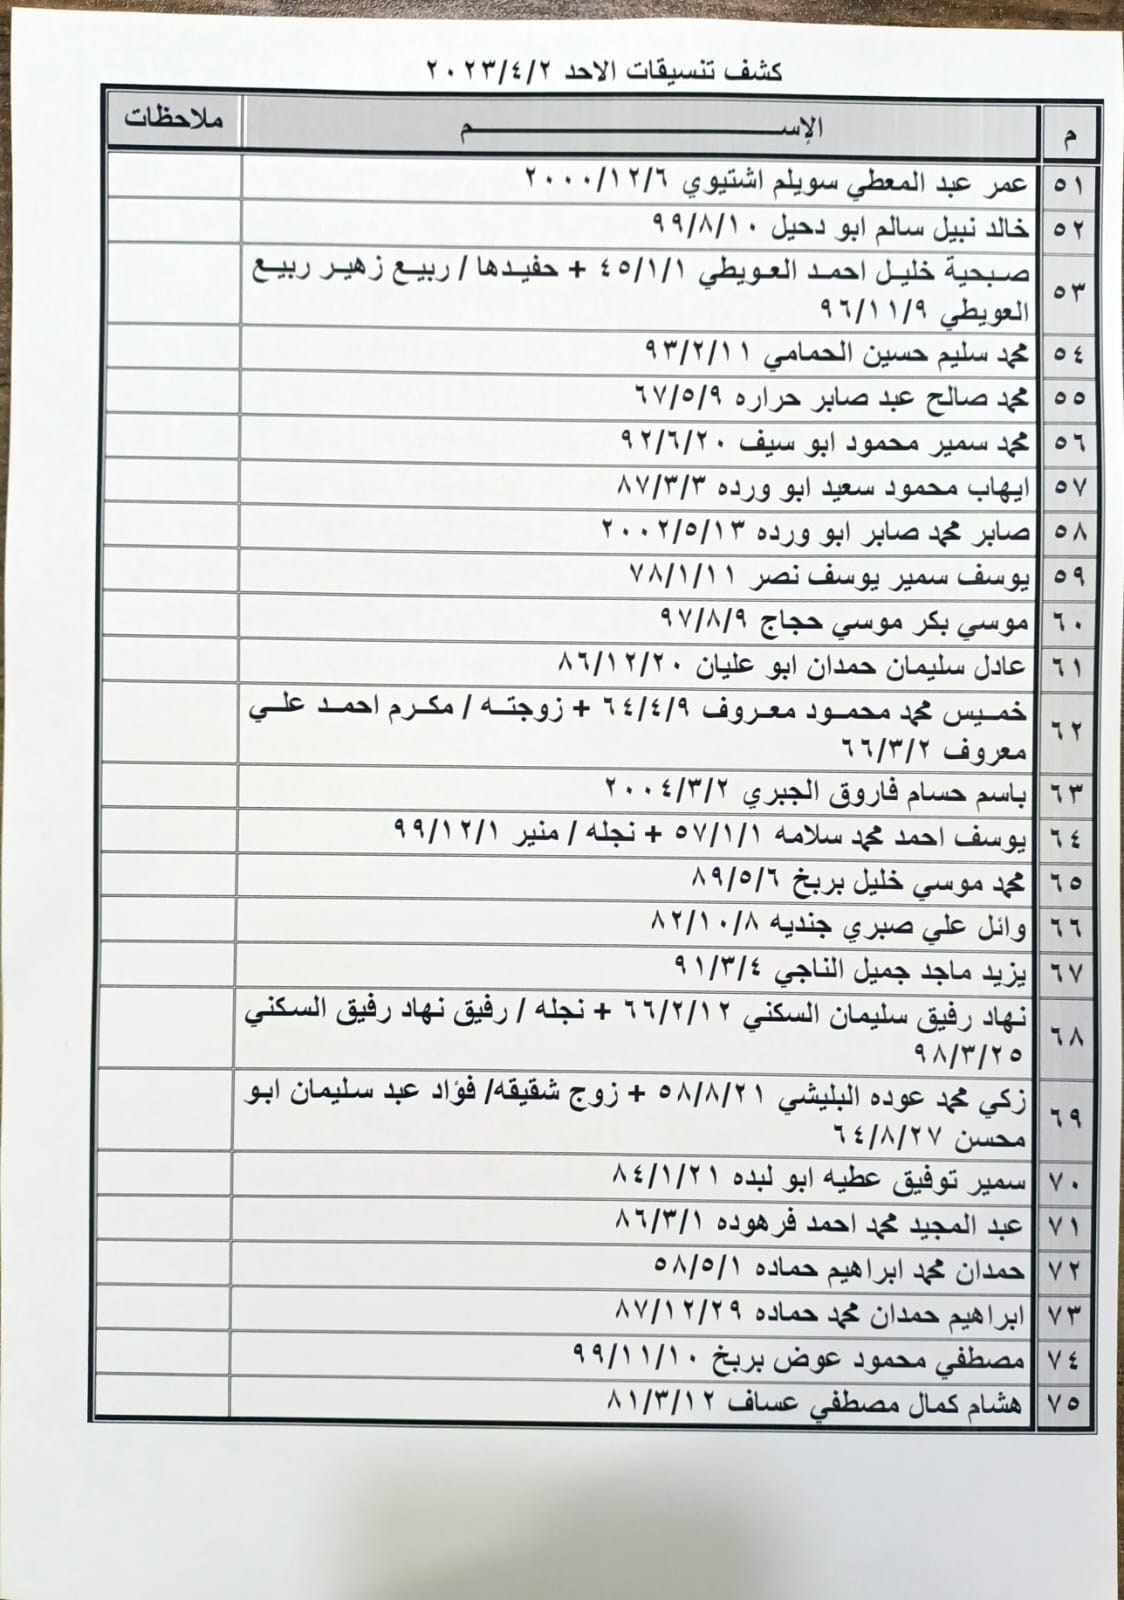 كشف تنسيقات الاحد ٢٠٢٣/٤/٢
م الإســـــــــــم ملاحظات
٥١ عمر عبد المعطي سويلم اشتيوي ٢٠٠٠/١٢/٦
٥٢ خالد نبيل سالم ابو دحيل ٩٩/٨/١٠
٥٣ صبحية خليل احمد العويطي ٤٥/١/١ + حفيدها / ربيع زهير ربيع
العويطي ٩٦/١١/٩
٥٤ محمد سليم حسين الحمامي ٩٣/٢/١١
٥٥ محمد صالح عبد صابر حراره ٦٧/٥/٩
٥٦ محمد سمير محمود ابو سيف ٩٢/٦/٢٠
٥٧ ايهاب محمود سعيد ابو ورده ٨٧/٣/٣
٥٨ صابر محمد صابر ابو ورده ٢٠٠٢/٥/١٣
٥٩ يوسف سمير يوسف نصر ٧٨/١/١١
٦٠ موسي بكر موسي حجاج ٩٧/٨/٩
٦١ عادل سليمان حمدان ابو عليان ٨٦/١٢/٢٠
٦٢ خميس محمد محمود معروف ٦٤/٤/٩ + زوجته / مكرم احمد علي
معروف ٦٦/٣/٢
٦٣ باسم حسام فاروق الجبري ٢٠٠٤/٣/٢
٦٤ يوسف احمد محمد سلامه ٥٧/١/١ + نجله / منير ٩٩/١٢/١
٦٥ محمد موسي خليل بربخ ٨٩/٥/٦
٦٦ وائل علي صبري جنديه ٨٢/١٠/٨
٦٧ يزيد ماجد جميل الناجي ٩١/٣/٤
٦٨ نهاد رفيق سليمان السكني ٦٦/٢/١٢ + نجله / رفيق نهاد رفيق السكني
٩٨/٣/٢٥
٦٩ زكي محمد عوده البليشي ٥٨/٨/٢١ + زوج شقيقه/ فؤاد عبد سليمان ابو
محسن ٦٤/٨/٢٧
٧٠ سمير توفيق عطيه ابو لبده ٨٤/١/٢١
٧١ عبد المجيد محمد احمد فرهوده ٨٦/٣/١
٧٢ حمدان محمد ابراهيم حماده ٥٨/٥/١
٧٣ ابراهيم حمدان محمد حماده ٨٧/١٢/٢٩
٧٤ مصطفي محمود عوض بربخ ٩٩/١١/١٠
٧٥ هشام كمال مصطفي عساف ٨١/٣/١٢